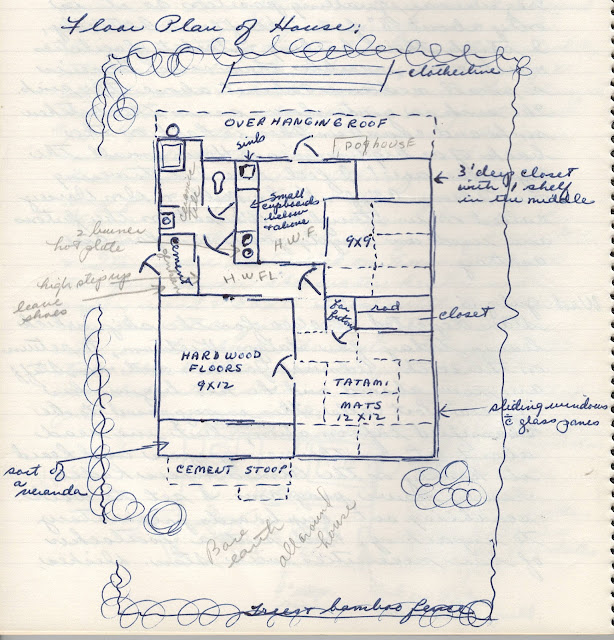 Floor Plan of House:
clothesline
OVERHANGING ROOF
sink
DOGHOUSE
3' deep closet
with 1 shelf
in the middle
small
cupboards
below
+ above
2 burner
hot plate
H.W.F.
9X9
H.W.FL.
high step up
leave
shoes
for
futons
rod
closet
HARDWOOD
FLOORS
9X12
TATAMI
MATS
12X12
sliding windows
c̄ glass panes
sort of
a
veranda
CEMENT STOOP
Bare
earth
all around
house
bamboo fence